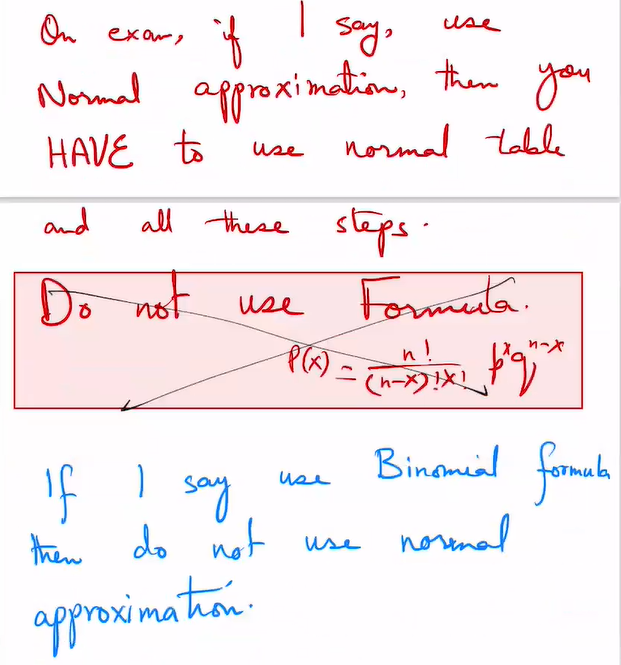 On exam, if I say, use
Normal approximation, then you
HAVE to use normal table
and all these steps.
Do not use Formula.
P(x) = n! / (n-x)!x! p^x q^n-x
If I say use Binomial formula
then do not use normal
approximation.